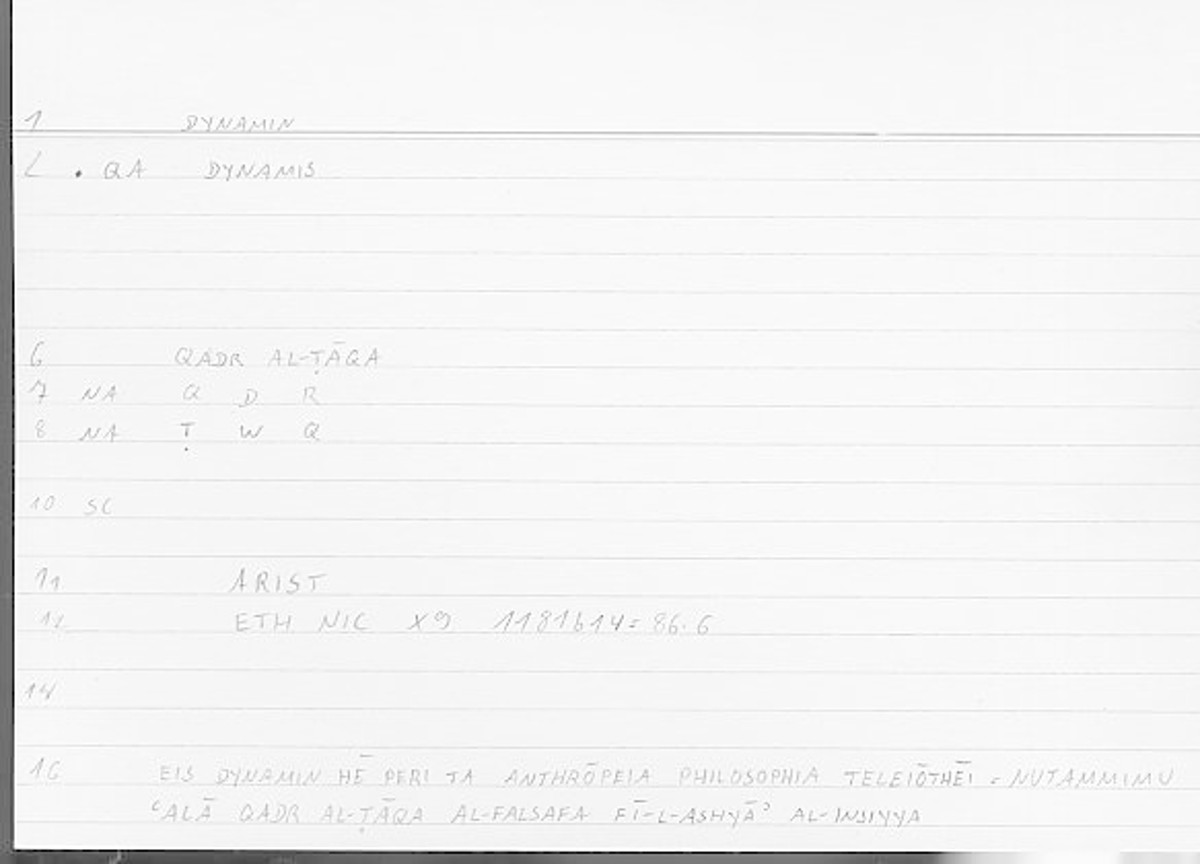 1 DYNAMIN
2 . QA DYNAMIS
6 QADR AL-ṬĀQA
7 NA Q D R
8 NA Ṭ W Q
10 SC
11 ARIST
12 ETH NIC X9 1181b14 = 86.6
14
16 EIS DYNAMIN HĒ PERI TA ANTHRŌPEIA PHILOSOPHIA TELEIŌTHĒI = NUTAMMIMU
ʿALĀ QADR AL-ṬĀQA AL-FALSAFA FĪ-L-ASHYĀʾ AL-INSIYYA